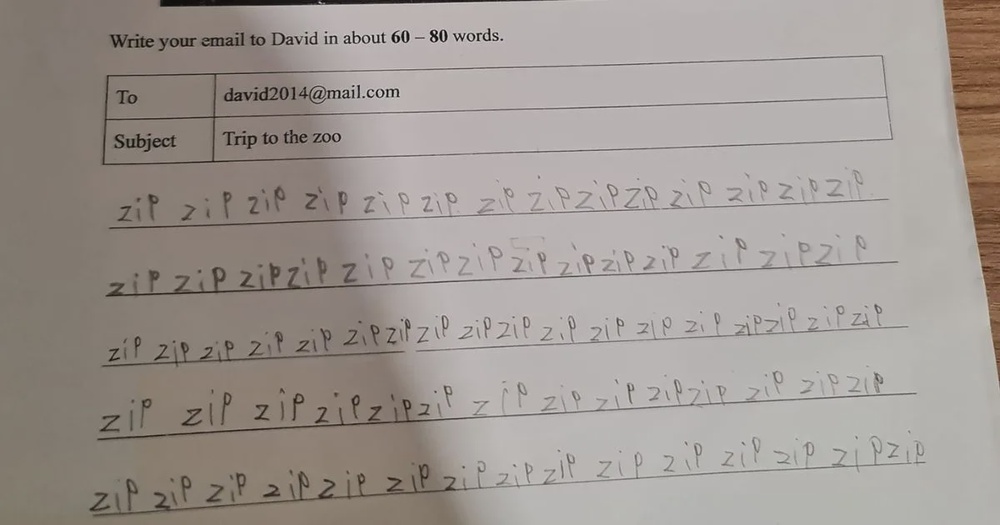 Write your email to David in about 60 – 80 words.
To david2014@mail.com
Subject Trip to the zoo
zip zip zip zip zip zip zip zip zip zip zip zip zip zip
zip zip zip zip zip zip zip zip zip zip zip zip zip zip
zip zip zip zip zip zip zip zip zip zip zip zip zip zip zip zip zip zip
zip zip zip zip zip zip zip zip zip zip zip zip zip zip
zip zip zip zip zip zip zip zip zip zip zip zip zip zip zip